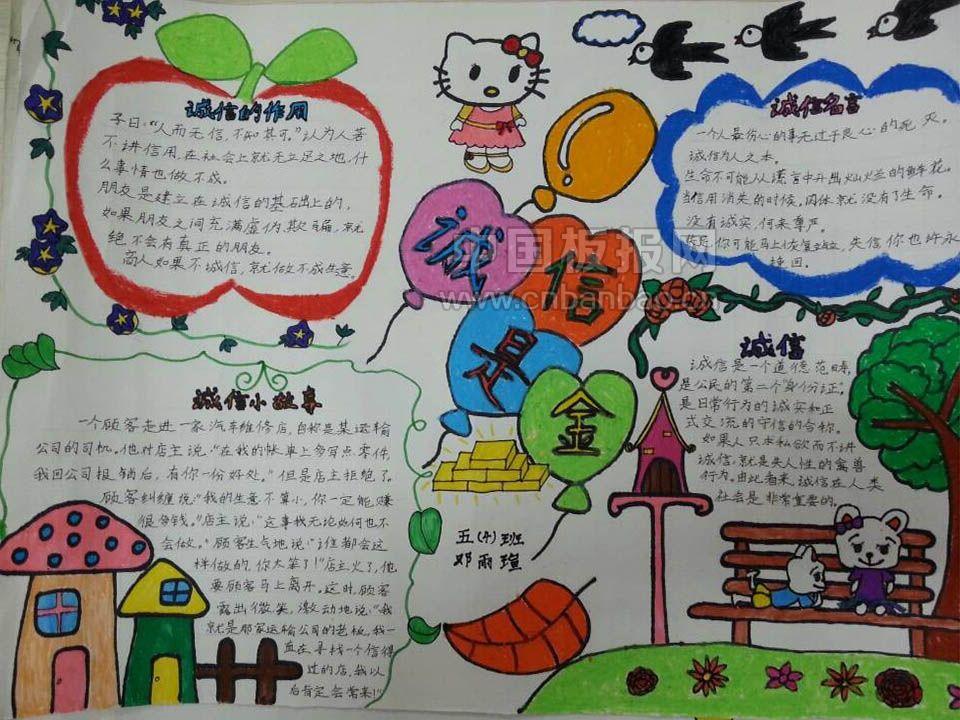 诚信的作用
子曰:“人而无信,不知其可。”认为人若
不讲信用,在社会上就无立足之地,什
么事情也做不成。
朋友是建立在诚信的基础上的,
如果朋友之间充满虚伪欺骗,就
绝不会有真正的朋友。
商人如果不诚信,就做不成生意。
诚信名言
一个人最伤心的事无过于良心的死灭。
诚信为人之本。
生命不可能从谎言中开出灿烂的鲜花。
当信用消失的时候,肉体就没有了生命。
没有诚实,何来尊严。
你可能马上恢复站立,失信你也许永
挽回。
诚
信
是
金
国板报网
www.cnbanbao.
诚信小故事
一个顾客走进一家汽车维修店,自称是某运输
公司的司机。他对店主说:“在我的帐单上多写点零件,
我回公司报销后,有你一份好处。”但是店主拒绝了。
顾客纠缠说:“我的生意不算小,你一定能赚
很多钱。”店主说:“这事我无论如何也不
会做。”顾客生气地说:“谁都会这
样做的,你太笨了!”店主火了,他
要顾客马上离开。这时顾客
露出微笑,激动地说:“我
就是那家运输公司的老板,我一
直在寻找一个信得
过的店,我以
后肯定会常来!”
诚信
诚信是一个道德范畴,
是公民的第二个“身份证”。
是日常行为的诚实和正
式交流的守信的合称。
如果人只求私欲而不讲
诚信,就是失人性的禽兽
行为。由此看来,诚信在人类
社会是非常重要的。
五(4)班
邓雨瑄